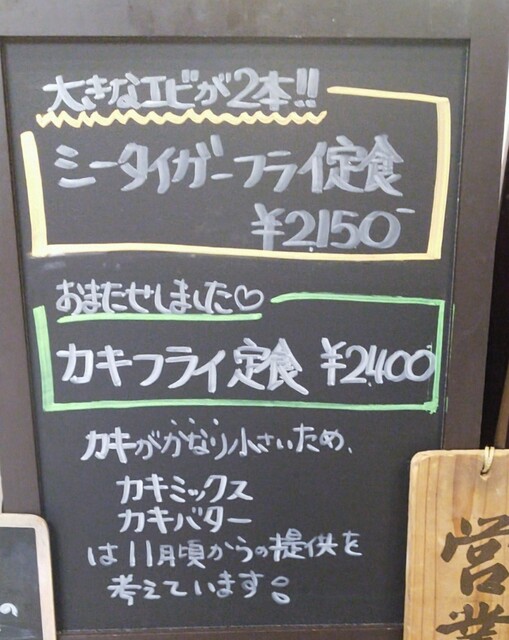 大きなエビが2本!!
シータイガーフライ定食
¥2,150-
おまたせしました♡
カキフライ定食 ¥2,400
カキがかなり小さいため、
カキミックス
カキバター
は11月頃からの提供を
考えています。
営業
の